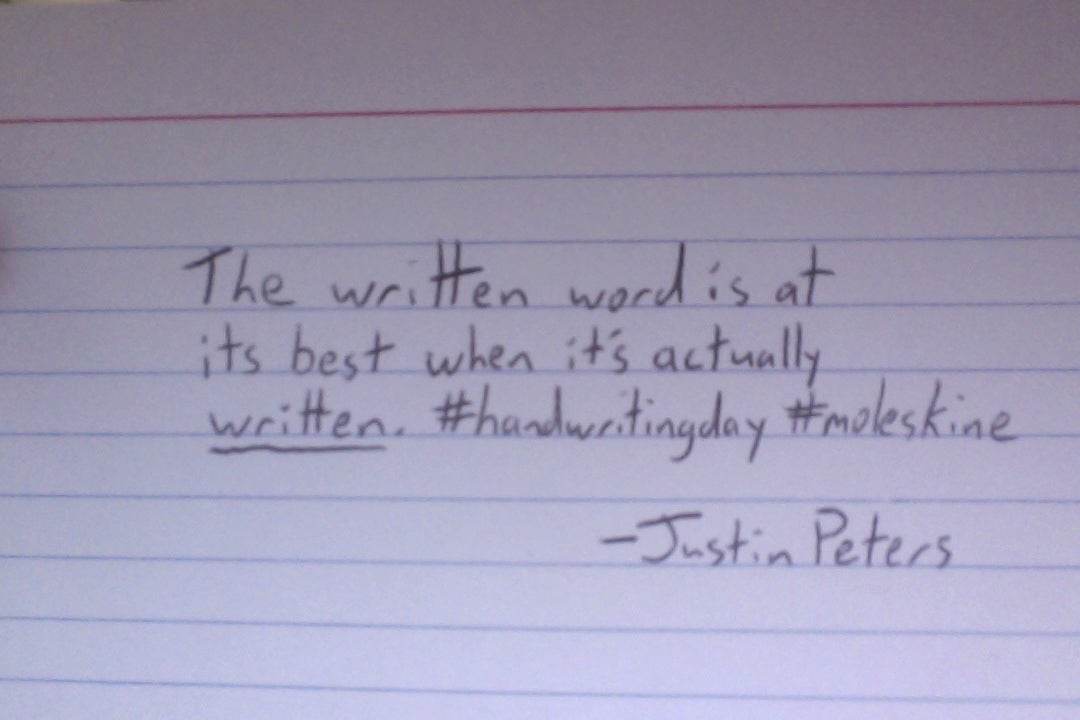 The written word is at
its best when it's actually
written. #handwritingday #moleskine
-Justin Peters